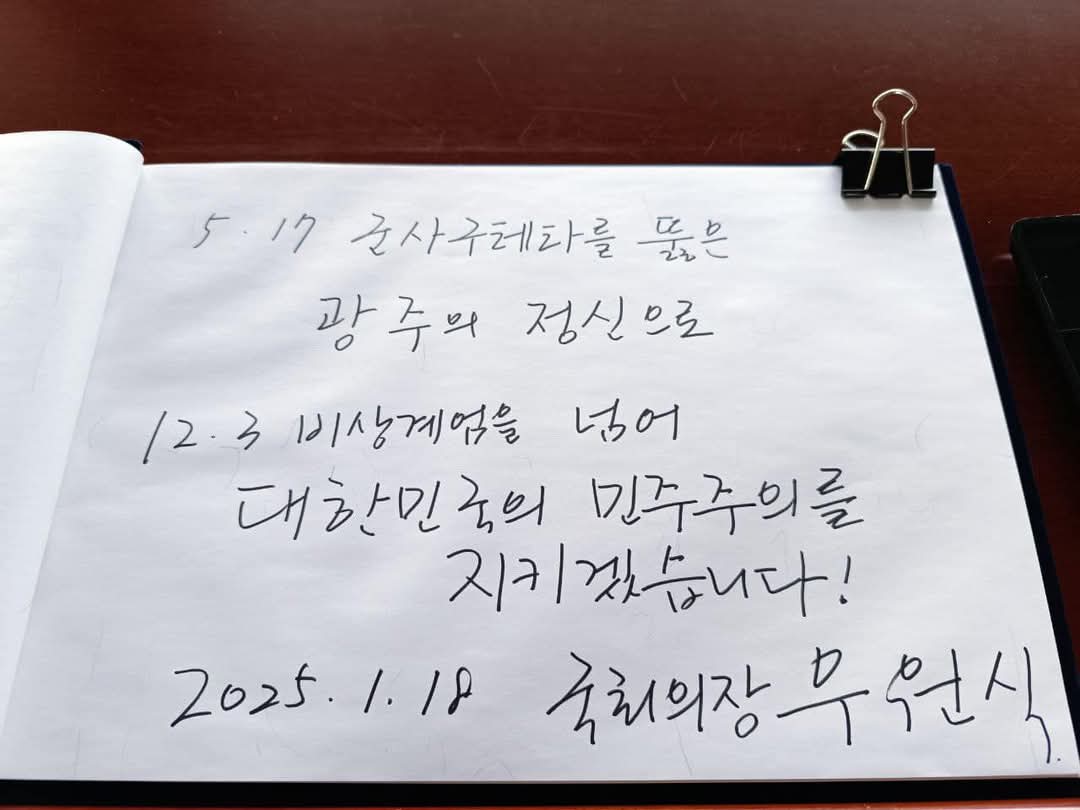 5.17 군사쿠테타를 뚫은
광주의 정신으로
12.3 비상계엄을 넘어
대한민국의 민주주의를
지키겠습니다!
2025.1.18 국회의장 우원식